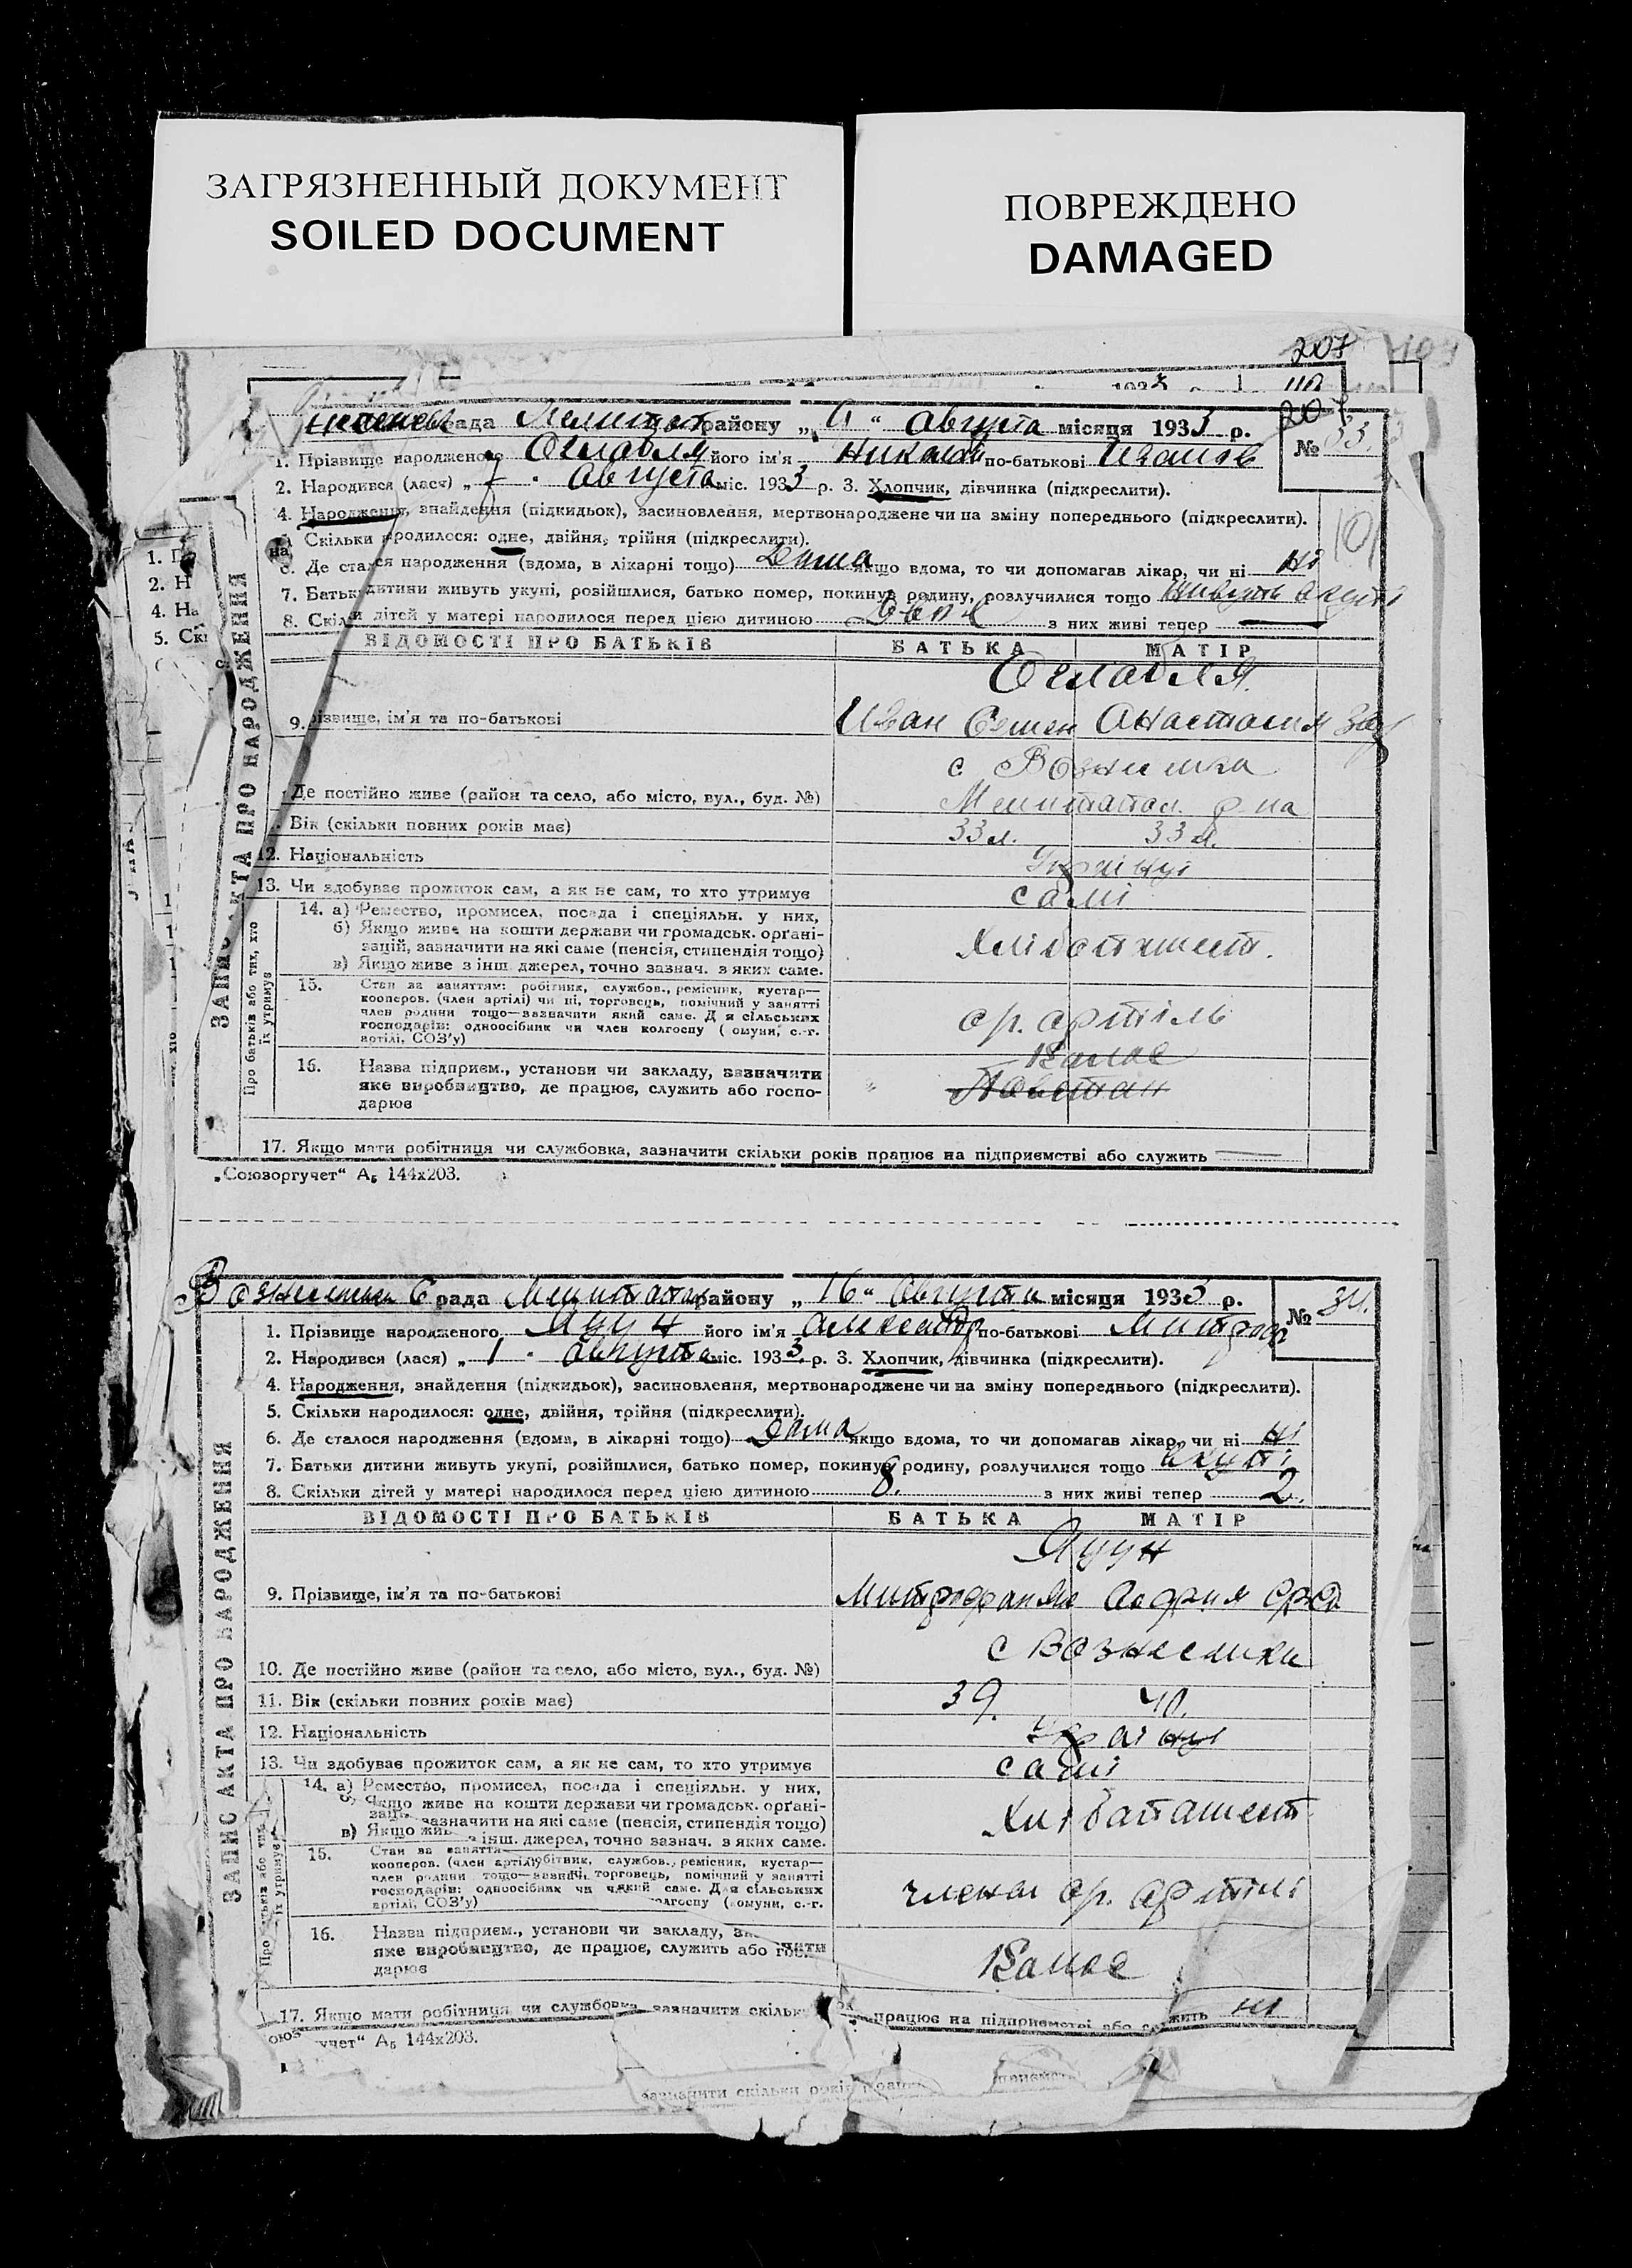 ЗАГРЯЗНЕННЫЙ ДОКУМЕНТ
SOILED DOCUMENT
ПОВРЕЖДЕНО
DAMAGED
207
рада району „ “ Августа місяця 1933 р.
№ 33.
1. Прізвище народженого його ім'я Николай по-батькові Иванов
2. Народився (лася) „ 7 . Августа міс. 1933 р. 3. Хлопчик, дівчинка (підкреслити).
4. Народження, знайдення (підкидьок), засиновлення, мертвонароджене чи на зміну попереднього (підкреслити).
Скільки народилося: одне, двійня, трійня (підкреслити).
6. Де сталося народження (вдома, в лікарні тощо) Дома якщо вдома, то чи допомагав лікар, чи ні ні
7. Батьки дитини живуть укупі, розійшлися, батько помер, покинув родину, розлучилися тощо живуть вкупі
8. Скільки дітей у матері народилося перед цією дитиною з них живі тепер —
ВІДОМОСТІ ПРО БАТЬКІВ БАТЬКА МАТІР
9. Прізвище, ім'я та по-батькові Иван Семен Анастасия Зах
с Вознесенка
Де постійно живе (район та село, або місто, вул., буд. №) Мелитопол. р-на
Вік (скільки повних років має) 33 л. 33 л.
12. Національність Українці
13. Чи здобуває прожиток сам, а як не сам, то хто утримує самі
14. а) Ремество, промисел, посада і спеціяльн. у них,
б) Якщо живе на кошти держави чи громадськ. органі-
зацій, зазначити на які саме (пенсія, стипендія тощо)
в) Якщо живе з інш. джерел, точно зазнач. з яких саме.
15. Стан за заняттям: робітник, службов., ремісник, кустар—
кооперов. (член артілі) чи ні, торговець, помічний у занятті
член родини тощо—зазначити який саме. Для сільських
господарів: одноосібник чи член колгоспу (комуни, с.-г.
артілі, СОЗ'у)
ср. артіль
16. Назва підприєм., установи чи закладу, зазначити
яке виробництво, де працює, служить або госпо-
дарює
17. Якщо мати робітниця чи службовка, зазначити скільки років працює на підприємстві або служить —
„Союзоргучет“ А₅ 144х203.
ЗАПИС АКТА ПРО НАРОДЖЕННЯ
Про батьків або тих, хто їх утримує
рада району „ 16 “ Августа місяця 1933 р.
№ 34.
1. Прізвище народженого Яцун його ім'я Александр по-батькові Митроф
2. Народився (лася) „ 1 . Августа міс. 1933 р. 3. Хлопчик, дівчинка (підкреслити).
4. Народження, знайдення (підкидьок), засиновлення, мертвонароджене чи на зміну попереднього (підкреслити).
5. Скільки народилося: одне, двійня, трійня (підкреслити).
6. Де сталося народження (вдома, в лікарні тощо) Дома якщо вдома, то чи допомагав лікар, чи ні ні
7. Батьки дитини живуть укупі, розійшлися, батько помер, покинув родину, розлучилися тощо вкупі
8. Скільки дітей у матері народилося перед цією дитиною 8. з них живі тепер 2.
ВІДОМОСТІ ПРО БАТЬКІВ БАТЬКА МАТІР
Яцун
9. Прізвище, ім'я та по-батькові Митрофан
10. Де постійно живе (район та село, або місто, вул., буд. №) с Вознесенки
11. Вік (скільки повних років має) 39. 40.
12. Національність Українці
13. Чи здобуває прожиток сам, а як не сам, то хто утримує самі
14. а) Ремество, промисел, посада і спеціяльн. у них,
б) Якщо живе на кошти держави чи громадськ. органі-
зацій, зазначити на які саме (пенсія, стипендія тощо)
в) Якщо живе з інш. джерел, точно зазнач. з яких саме.
15. Стан за заняттям робітник, службов., ремісник, кустар—
кооперов. (член артілі) торговець, помічний у занятті
член родини тощо—зазнач. який саме. Для сільських
господарів: одноосібник чи колгоспу (комуни, с.-г.
артілі, СОЗ'у)
члени ср. артілі
16. Назва підприєм., установи чи закладу, зазначити
яке виробництво, де працює, служить або госпо-
дарює
17. Якщо мати робітниця чи службовка, зазначити скільки працює на підприємстві або служить ні
учет“ А₅ 144х203.
ЗАПИС АКТА ПРО НАРОДЖЕННЯ
зазначити скільки років працює